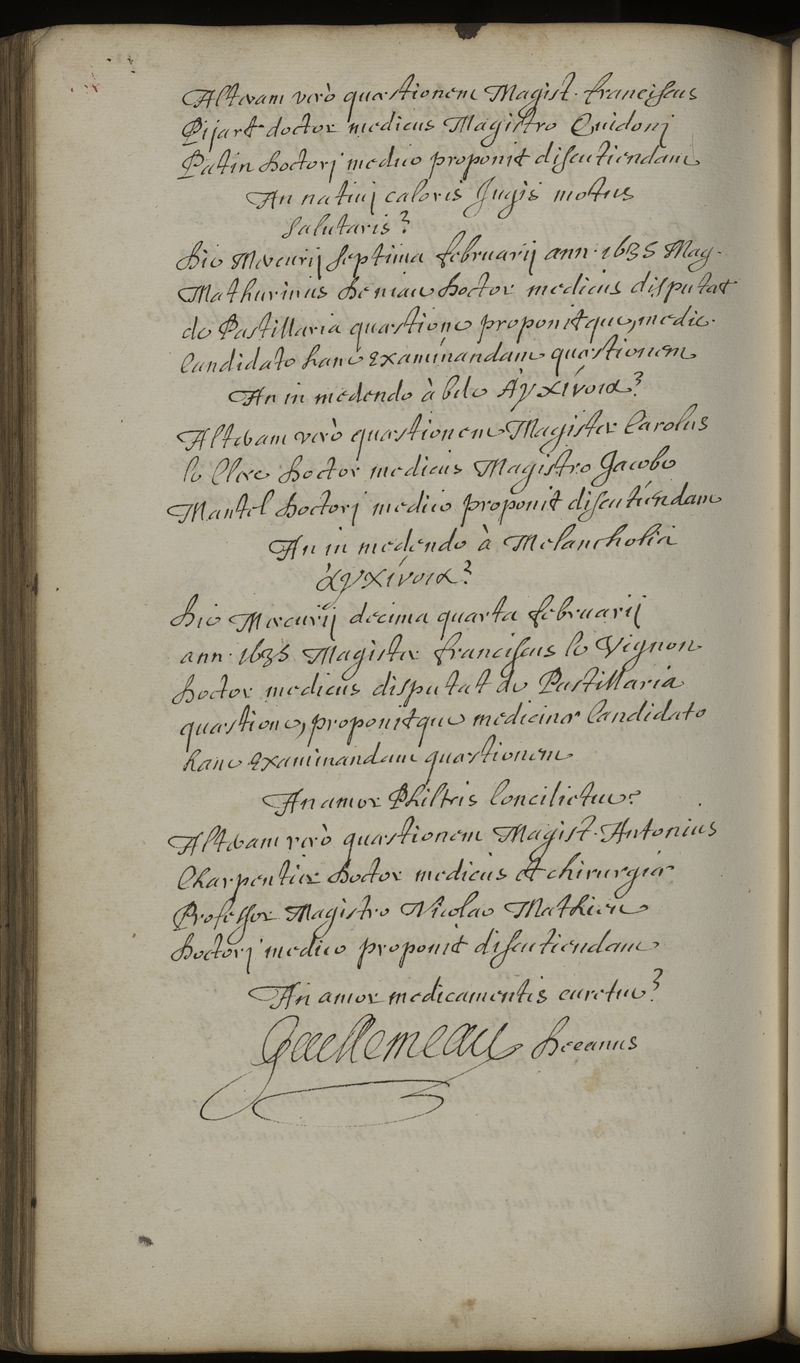 Alteram verò quæstionem Magist. franciscus
Pijart doctor medicus Magistro Guidonj
Patin Doctorj medico proponit discutiendam
An natiuj caloris Jugis motus
salutaris?
Die Mercurij septima februarij ann. 1635 Mag.
Mathurinus Deniau Doctor medicus disputat
de Pastillaria quæstione proponitque, medic.
Candidato hanc Examinandam quæstionem
An in medendo à bile Ἀγχίνοια?
Alteram verò quæstionem Magister Carolus
le Clerc Doctor medicus Magistro Jacobo
Mantel Doctorj medico proponit discutiendam
An in medendo à Melancholia
ἀγχίνοια?
Die Mercurij decima quarta februarij
ann. 1635 Magister franciscus le Vignon
Doctor medicus disputat de Pastillaria
quæstione, proponitque medicinæ Candidato
hanc Examinandam quæstionem
An amor Philtris Concilietur?
Alteram verò quæstionem Magist. Antonius
Charpentier Doctor medicus et chirurgiæ
Professor Magistro Nicolao Mathieu
Doctorj medico proponit discutiendam
An amor medicamentis curetur?
Guillemeau Decanus